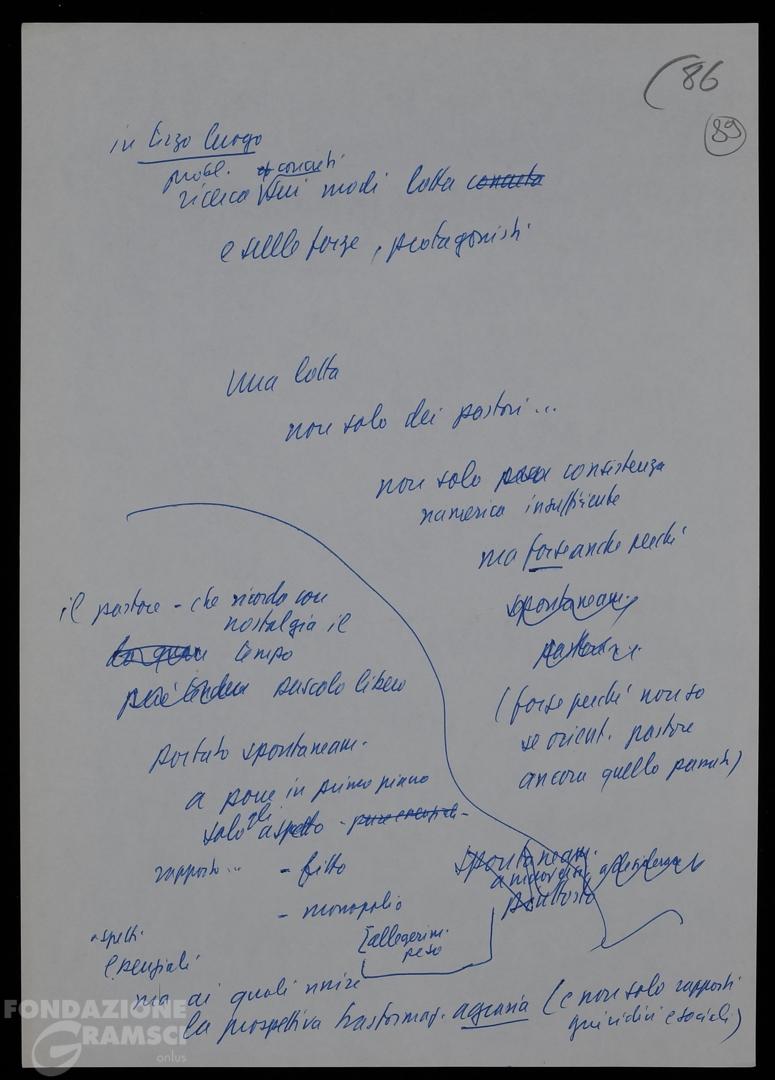 (86
89
in terzo luogo
probl. concreti
ricerca dei modi lotta concreta
e delle forze, protagonisti
Una lotta
non solo dei pastori...
non solo consistenza
numerica insufficiente
ma forse anche perché
spontaneam.
(forse perché non so
se orient. pastore
ancora quello
il pastore - che ricorda con
nostalgia il
tempo
pascolo libero
portato spontaneam.
a porre in primo piano
solo gli aspetto -
rapporto... - fitto
- monopolio
[allegerim.
peso
spontaneam.
piuttosto
aspetti
essenziali
ma ai quali unire
la prospettiva trasformaz. agraria (e non solo rapporti
giuridici e sociali)
FONDAZIONE
GRAMSCI
onlus